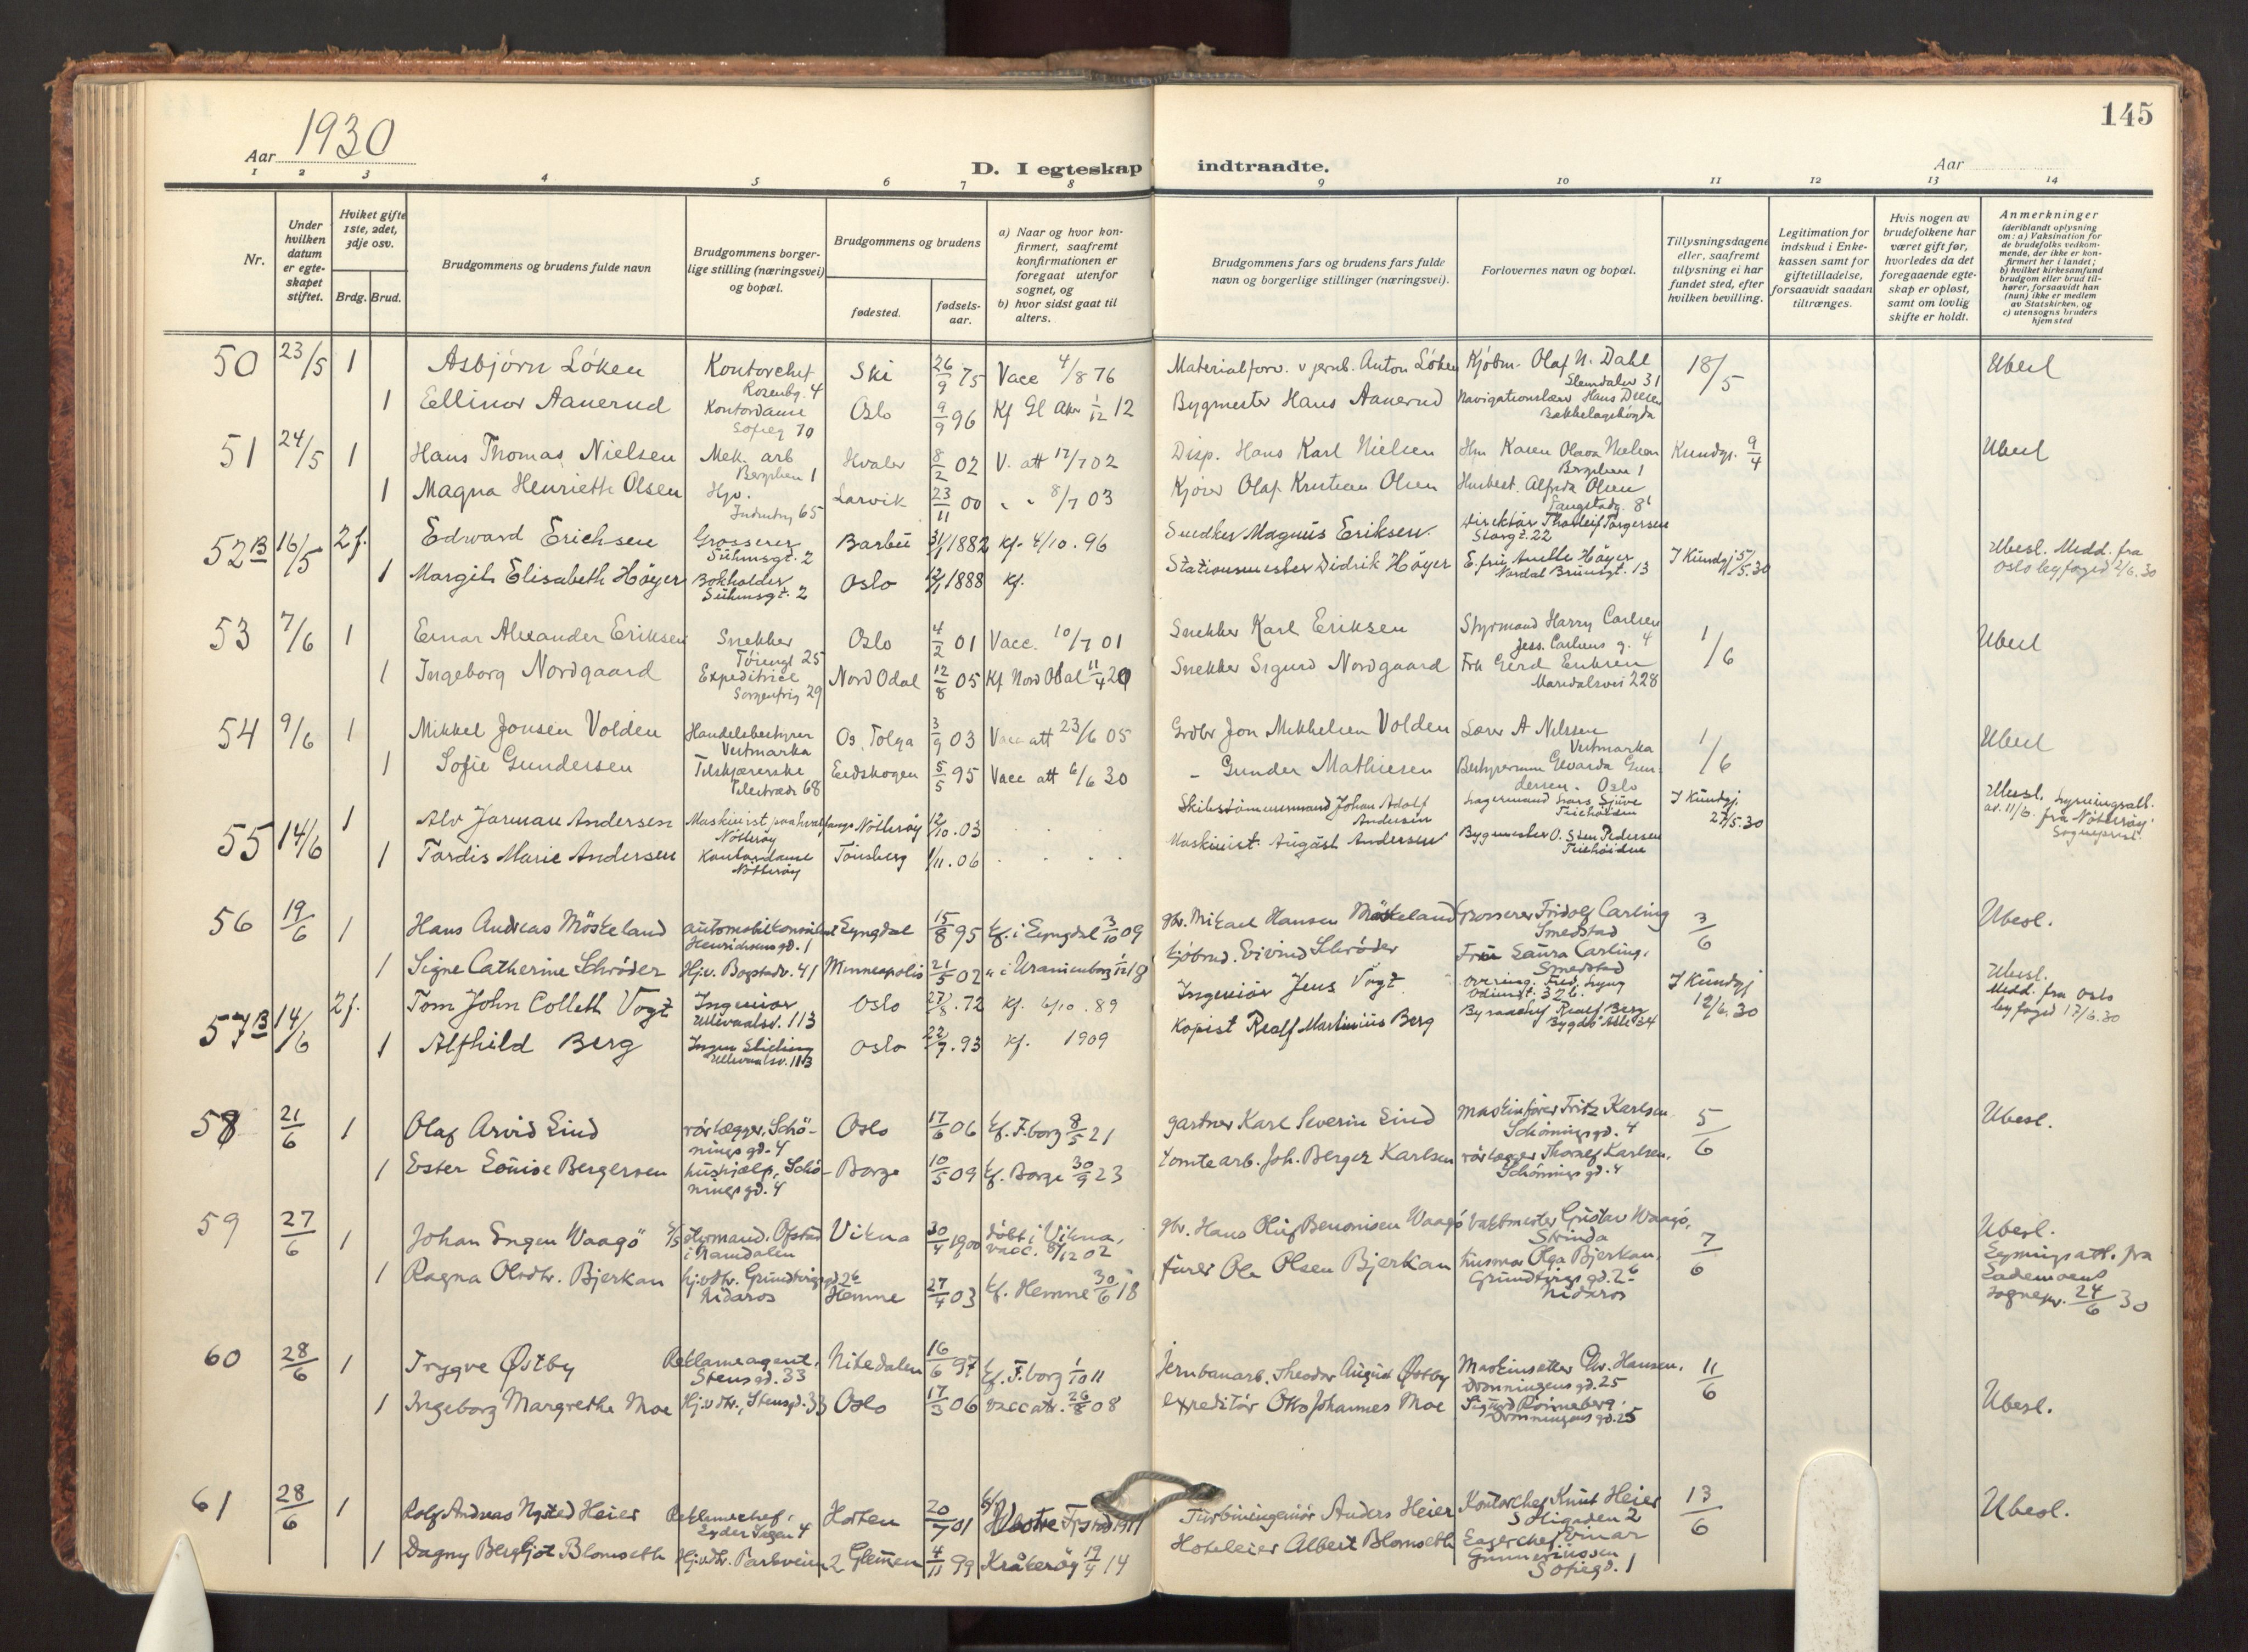 145
Aar 1930
D. I egteskap indtraadte.
Aar
1 2 3 4 5 6 7 8 9 10 11 12 13 14
Nr.
Under hvilken datum er egte-skapet stiftet.
Hviket gifte 1ste, 2det, 3dje osv.
Brdg. Brud.
Brudgommens og brudens fulde navn
Brudgommens borger-lige stilling (næringsvei) og bopæl.
Brudgommens og brudens
fødested.
fødsels-aar.
a) Naar og hvor kon-firmert, saafremt konfirmationen er foregaat utenfor sognet, og
b) hvor sidst gaat til alters.
Brudgommens fars og brudens fars fulde navn og borgerlige stillinger (næringsvei).
Forlovernes navn og bopæl.
Tillysningsdagene eller, saafremt tillysning ei har fundet sted, efter hvilken bevilling.
Legitimation for indskud i Enke-kassen samt for giftetilladelse, forsaavidt saadan tiltrænges.
Hvis nogen av brudefolkene har været gift før, hvorledes da det foregaaende egte-skap er opløst, samt om lovlig skifte er holdt.
Anmerkninger (deriblandt oplysning om: a) Vaksination for de brudefolks vedkom-mende, der ikke er kon-firmert her i landet; b) hvilket kirkesamfund brudgom eller brud til-hører, forsaavidt han (hun) ikke er medlem av Statskirken, og c) utensogns bruders hjemsted
50 23/5 1 Asbjörn Löken Kontorchef Rosenbg. 4 Ski 26/9 75 Vacc 4/8 76 Materialforv. v jernb. Anton Löken Kjöbm. Olaf N. Dahl Slemdalsv 31 18/5 Ubesl
1 Ellinor Aanerud Kontordame Sofieg 70 Oslo 9/9 96 Kf Gl Aker 1/12 12 Bygmester Hans Aanerud Navigationslærer Hans Bækkelagshögda
51 24/5 1 Hans Thomas Nielsen Mek. arb 1 Hvaler 8/2 02 V. att 17/7 02 Disp. Hans Karl Nielsen Karen Nielsen 1 Kundgj. 9/4 Ubesl
1 Magna Henriette Olsen Hjv. 65 Larvik 23/11 00 " " 8/7 03 Kjörer Olaf Kristian Olsen Alfrida Olsen
52 B 16/5 2 f. Edward Erichsen Grosserer Suhmsgt. 2 Barbu 31/1 1882 Kf. 4/10. 96 Snedker Magnus Eriksen Direktör Thorleif Torgersen Storgt. 22 I Kundgj. 5/5.30 Ubesl. Medd. fra Oslo byfoged 2/6.30
1 Margith Elisabeth Höyer Bokholder Suhmsgt. 2 Oslo 1888 Kf. Stationsmester Didrik Höyer E. fru Anette Höyer Nordal Brunsgt. 13
53 7/6 1 Einar Alexander Eriksen Snekker 25 Oslo 4/2 01 Vacc. 10/7 01 Snekker Karl Eriksen Styrmand Harry Carlsen Jess. Carlsens g. 4 1/6 Ubesl
1 Ingeborg Nordgaard Expeditrice Sorgenfrig 29 Nord Odal 12/8 05 Kf Nord Odal 11/4 20 Snekker Sigurd Nordgaard Frk Gerd Eriksen Maridalsvei 228
54 9/6 1 Mikkel Jonsen Volden Handelsbestyrer Vestmarka Os, Tolga 3/9 03 Vacc att 23/6 05 Grdbr Jon Mikkelsen Volden Lærer A Nilssen Vestmarka 1/6 Ubesl
1 Sofie Gundersen Tilskjærerske 68 Eidskogen 5/5 95 Vacc att 6/6 30 — Gunder Mathiesen Bestyrerinne Gun-dersen. Oslo
55 14/6 1 Alv Jarman Andersen Maskinist paa hvalfangs Nötteröy Nötteröy 12/10. 03 Skibstömmermand Johan Adolf Andersen Lagermand Lars I Kundgj. 27/5.30 Ubesl. Lysningsatt. av. 11/6. fra Nötteröy Sogneprest.
1 Tordis Marie Andersen Kontordame Nötteröy Tönsberg 1/11. 06 Maskinist. August Andersen Bygmester O. Sten Pedersen
56 19/6 1 Hans Andreas Möskeland automobilkonsulent Henrichsens gd. 1 Lyngdal 15/8 95 kf. i Lyngdal 3/10 09 gbr. Mikael Hansen Möskeland Grosserer Fridolf Carling Smedstad 3/6 Ubesl.
1 Signe Catherine Schröder Hjv. Bogstadv. 41 Minneapolis 21/5 02 " i Uranienborg 1/12 18 kjöbmd. Eivind Schröder Fru Laura Carling, Smedstad
57 B 14/6 2 f. Tom John Collett Vogt Ingeniör Ullevaalsv. 113 Oslo 27/8. 72 Kf. 6/10. 89 Ingeniör Jens Vogt. I Kundgj 12/6.30 Ubesl. Medd. fra Oslo byfoged 17/6.30
1 Alfhild Berg Ingen Stilling Ullevaalsv. 113 Oslo 22/7. 93 Kf. 1909 Kopist Realf Martinius Berg Byraachef Realf Berg Bygdö Alle 34
58 21/6 1 Olaf Arvid Lind rörlegger, Schö-nings gd. 4 Oslo 17/6 06 kf. F. borg 8/5 21 gartner Karl Severin Lind maskinförer Fritz Karlsen Schönings gd. 4 5/6 Ubesl.
1 Ester Louise Bergersen hushjelp, Schö-nings gd. 4 Borge 10/5 09 kf. Borge 30/9 23 tomtearb. Joh. Berger Karlsen rörlegger Thoralf Karlsen. Schönings gd. 4
59 27/6 1 Johan Engen Waagö styrmand, Ofstad i Namdalen Vikna 30/4 1900 döbt i Vikna, vacc. 8/12 02 gbr. Hans Oluf Benonisen Waagö vaktmester Gustav Waagö, Strinda 7/6 Ubesl. Lysningsatt. fra Lademoens sognepr. 24/6 30
1 Ragna Olsdtr. Bjerkan hjvdtr. Grundtvigs gd 26 Nidaros Hemne 27/4 03 kf. Hemne 30/6 18 furer Ole Olsen Bjerkan husmor Olga Bjerkan, Grundtvigs gd. 26 Nidaros
60 28/6 1 Trygve Østby Reklameagent, Stens gd. 33 Nitedalen 16/6 97 kf. F. borg 1/10 11 Jernbanarb. Theodor August Østby Maskinsetter Chr. Hansen, Dronningens gd. 25 11/6
1 Ingeborg Margrethe Moe Hj.vdtr., Stensgd. 33 Oslo 17/3 06 vacc att. 26/8 08 expeditör Otto Johannes Moe Sigurd Rönneberg, Dronningens gd. 25 Ubesl.
61 28/6 1 Rolf Andreas Nysted Heier Reklamechef, Lyder Sagen 4 Horten 20/7 01 Turbiningeniör Anders Heier Kontorchef Knut Heier Soligaden 2 13/6 Ubesl.
1 Dagny Bergljot Blomseth Hjvdtr. Parkveien 2 Glemmen 4/11 99 Kråkeröy 19/4 14 Hoteleier Albert Blomseth Lagerchef Einar Gunneriussen Sofiegd. 1